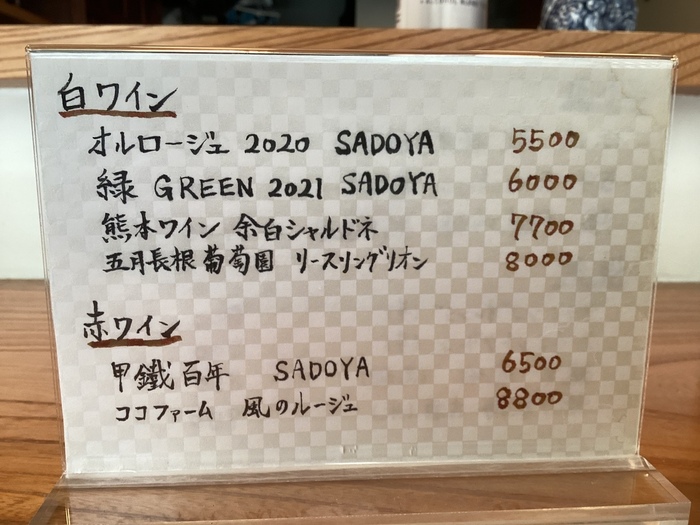 白ワイン
オルロージュ 2020 SADOYA 5500
緑 GREEN 2021 SADOYA 6000
熊本ワイン 余白シャルドネ 7700
五月長根葡萄園 リースリングリオン 8000
赤ワイン
甲鐵百年 SADOYA 6500
ココファーム 風のルージュ 8800